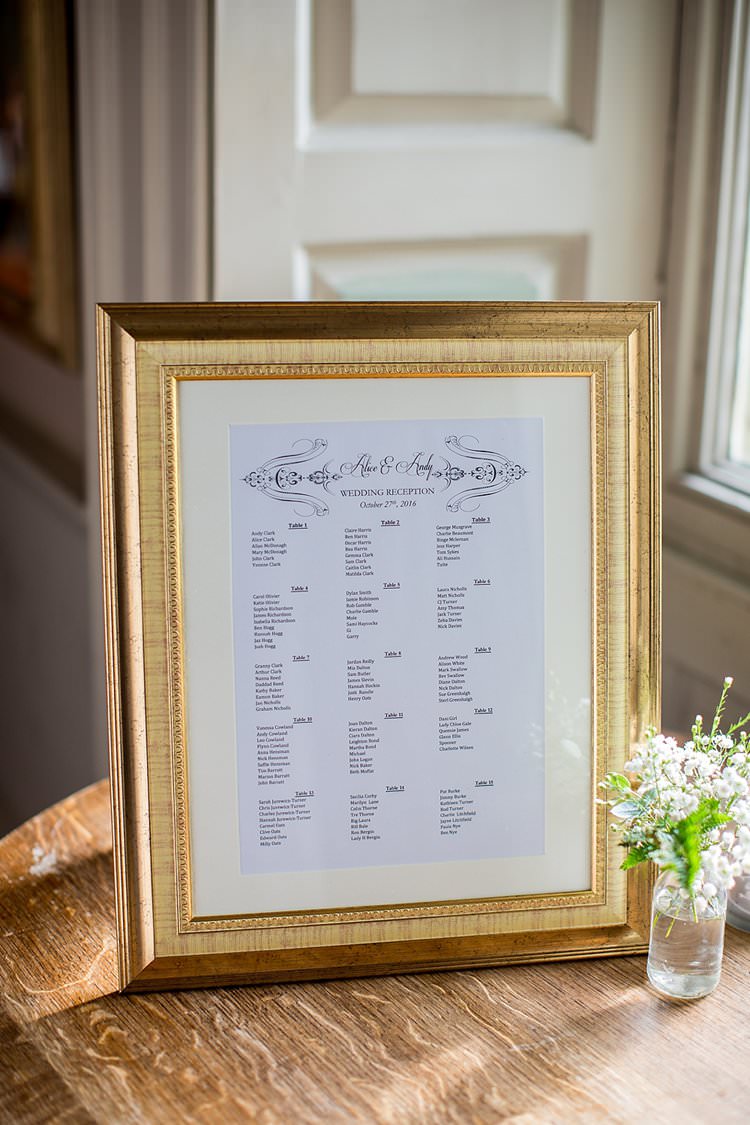 Alice & Andy
WEDDING RECEPTION
October 27th, 2016
Table 1
Andy Clark
Alice Clark
Allan McDonagh
Mary McDonagh
John Clark
Yvonne Clark
Table 2
Claire Harris
Ben Harris
Oscar Harris
Bea Harris
Gemma Clark
Sam Clark
Caitlin Clark
Matilda Clark
Table 3
George Musgrave
Charlie Beaumont
Binge McIernan
Jess Harper
Tom Sykes
Ali Hussain
Tuite
Table 4
Carol Olivier
Katie Olivier
Sophie Richardson
James Richardson
Isabella Richardson
Ben Hogg
Hannah Hogg
Jax Hogg
Josh Hogg
Table 5
Dylan Smith
Jamie Robinson
Rob Gamble
Charlie Gamble
Mole
Sami Haycocks
Gi
Garry
Table 6
Laura Nicholls
Matt Nicholls
CJ Turner
Amy Thomas
Jack Turner
Zeba Davies
Nick Davies
Table 7
Granny Clark
Arthur Clark
Nanna Reed
Daddad Reed
Kathy Baker
Eamon Baker
Jan Nicholls
Graham Nicholls
Table 8
Jordan Reilly
Mia Dalton
Sam Butler
James Slevin
Hannah
Josh Rundle
Henry Oats
Table 9
Andrew Wood
Alison White
Mark Swallow
Bev Swallow
Diane Dalton
Nick Dalton
Sue Greenhalgh
Steri Greenhalgh
Table 10
Vanessa Cowland
Andy Cowland
Leo Cowland
Flynn Cowland
Anna Hensman
Nick Hensman
Saffie Hensman
Tim Barratt
Marion Barratt
John Barratt
Table 11
Joan Dalton
Kieran Dalton
Ciara Dalton
Leighton Bond
Martha Bond
Michael
John Logue
Nick Baker
Beth Moffat
Table 12
Dani Girl
Lady Chloe Gale
Queenie James
Glenn Ellis
Spooner
Charlotte Wilson
Table 13
Sarah Jurewicz-Turner
Charles Jurewicz-Turner
Hannah Jurewicz-Turner
Carmel Oats
Clive Oats
Edward Oats
Milly Oats
Table 14
Sascha Corby
Marilyn Lane
Colin Thorne
Tre Thorne
Big Laura
Bill Bale
Ron Bergin
Lady H Bergin
Table 15
Pat Burke
Jimmy Burke
Kathleen Turner
Rod Turner
Charlie Litchfield
Jayne Litchfield
Paula Nye
Ben Nye